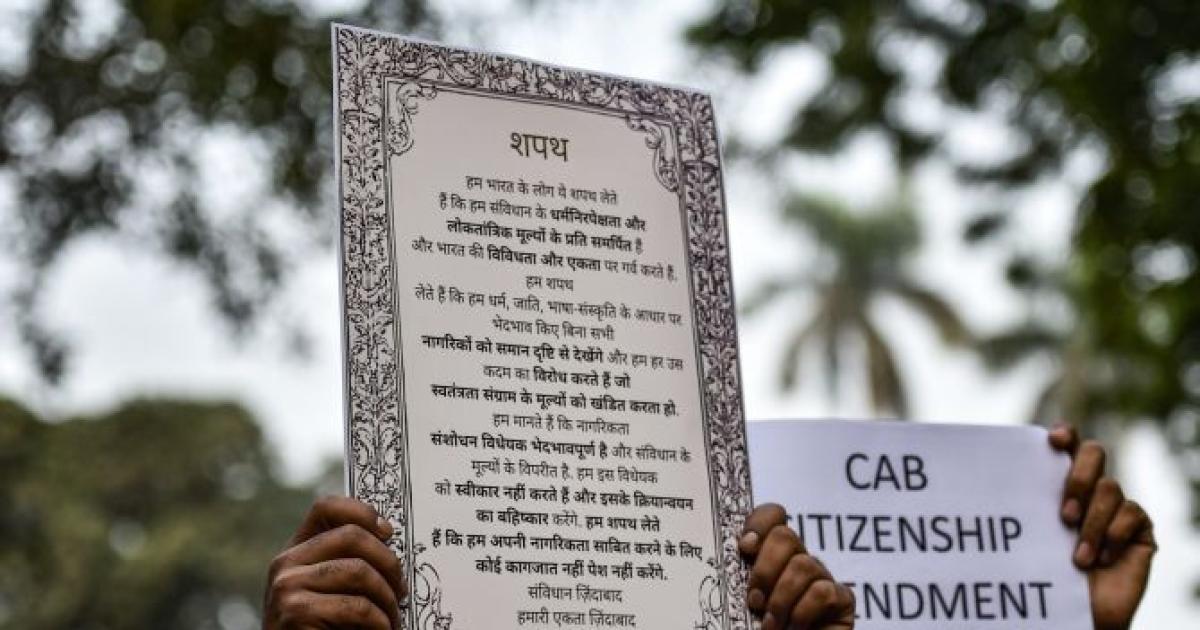 शपथ
हम भारत के लोग ये शपथ लेते
हैं कि हम संविधान के धर्मनिरपेक्षता और
लोकतांत्रिक मूल्यों के प्रति समर्पित है
और भारत की विविधता और एकता पर गर्व करते हैं.
हम शपथ
लेते हैं कि हम धर्म, जाति, भाषा-संस्कृति के आधार पर
भेदभाव किए बिना सभी
नागरिकों को समान दृष्टि से देखेंगे और हम हर उस
कदम का विरोध करते हैं जो
स्वतंत्रता संग्राम के मूल्यों को खंडित करता हो.
हम मानते हैं कि नागरिकता
संशोधन विधेयक भेदभावपूर्ण है और संविधान के
मूल्यों के विपरीत है. हम इस विधेयक
को स्वीकार नहीं करते हैं और इसके क्रियान्वयन
का बहिष्कार करेंगे. हम शपथ लेते
हैं कि हम अपनी नागरिकता साबित करने के लिए
कोई कागजात नहीं पेश नहीं करेंगे.
संविधान ज़िंदाबाद
हमारी एकता ज़िंदाबाद
CAB
ITIZENSHIP
ENDMENT